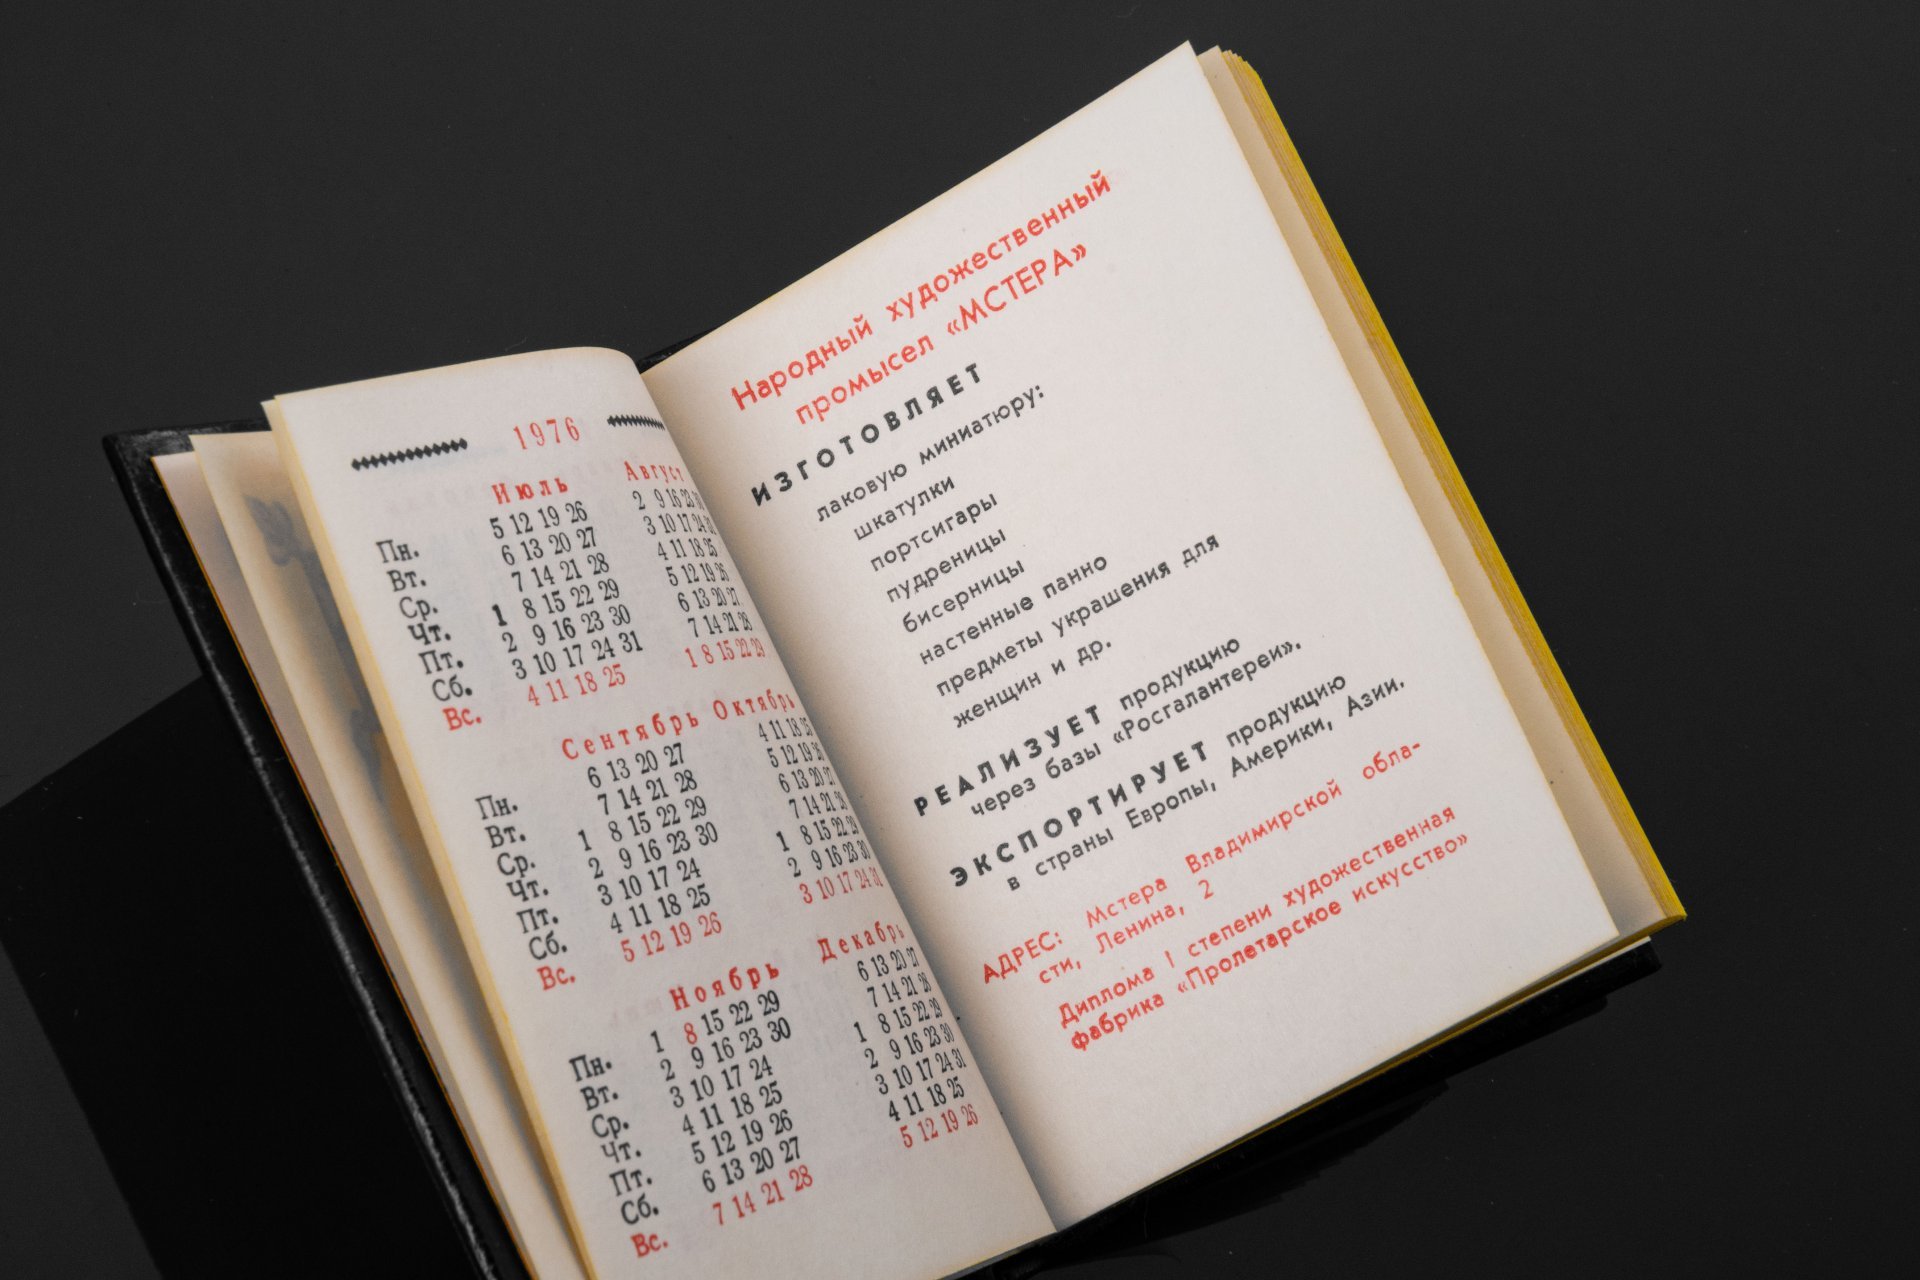 1976
Июль Август
Пн. 5 12 19 26 2 9 16 23 30
Вт. 6 13 20 27 3 10 17 24 31
Ср. 7 14 21 28 4 11 18 25
Чт. 1 8 15 22 29 5 12 19 26
Пт. 2 9 16 23 30 6 13 20 27
Сб. 3 10 17 24 31 7 14 21 28
Вс. 4 11 18 25 1 8 15 22 29
Сентябрь Октябрь
Пн. 6 13 20 27 4 11 18 25
Вт. 7 14 21 28 5 12 19 26
Ср. 1 8 15 22 29 6 13 20 27
Чт. 2 9 16 23 30 7 14 21 28
Пт. 3 10 17 24 1 8 15 22 29
Сб. 4 11 18 25 2 9 16 23 30
Вс. 5 12 19 26 3 10 17 24 31
Ноябрь Декабрь
Пн. 1 8 15 22 29 6 13 20 27
Вт. 2 9 16 23 30 7 14 21 28
Ср. 3 10 17 24 1 8 15 22 29
Чт. 4 11 18 25 2 9 16 23 30
Пт. 5 12 19 26 3 10 17 24 31
Сб. 6 13 20 27 4 11 18 25
Вс. 7 14 21 28 5 12 19 26
Народный художественный
промысел «МСТЕРА»
ИЗГОТОВЛЯЕТ
лаковую миниатюру:
шкатулки
портсигары
пудреницы
бисерницы
настенные панно
предметы украшения для
женщин и др.
РЕАЛИЗУЕТ продукцию
через базы «Росгалантереи».
ЭКСПОРТИРУЕТ продукцию
в страны Европы, Америки, Азии.
АДРЕС: Мстера Владимирской обла-
сти, Ленина, 2
Диплома I степени художественная
фабрика «Пролетарское искусство»